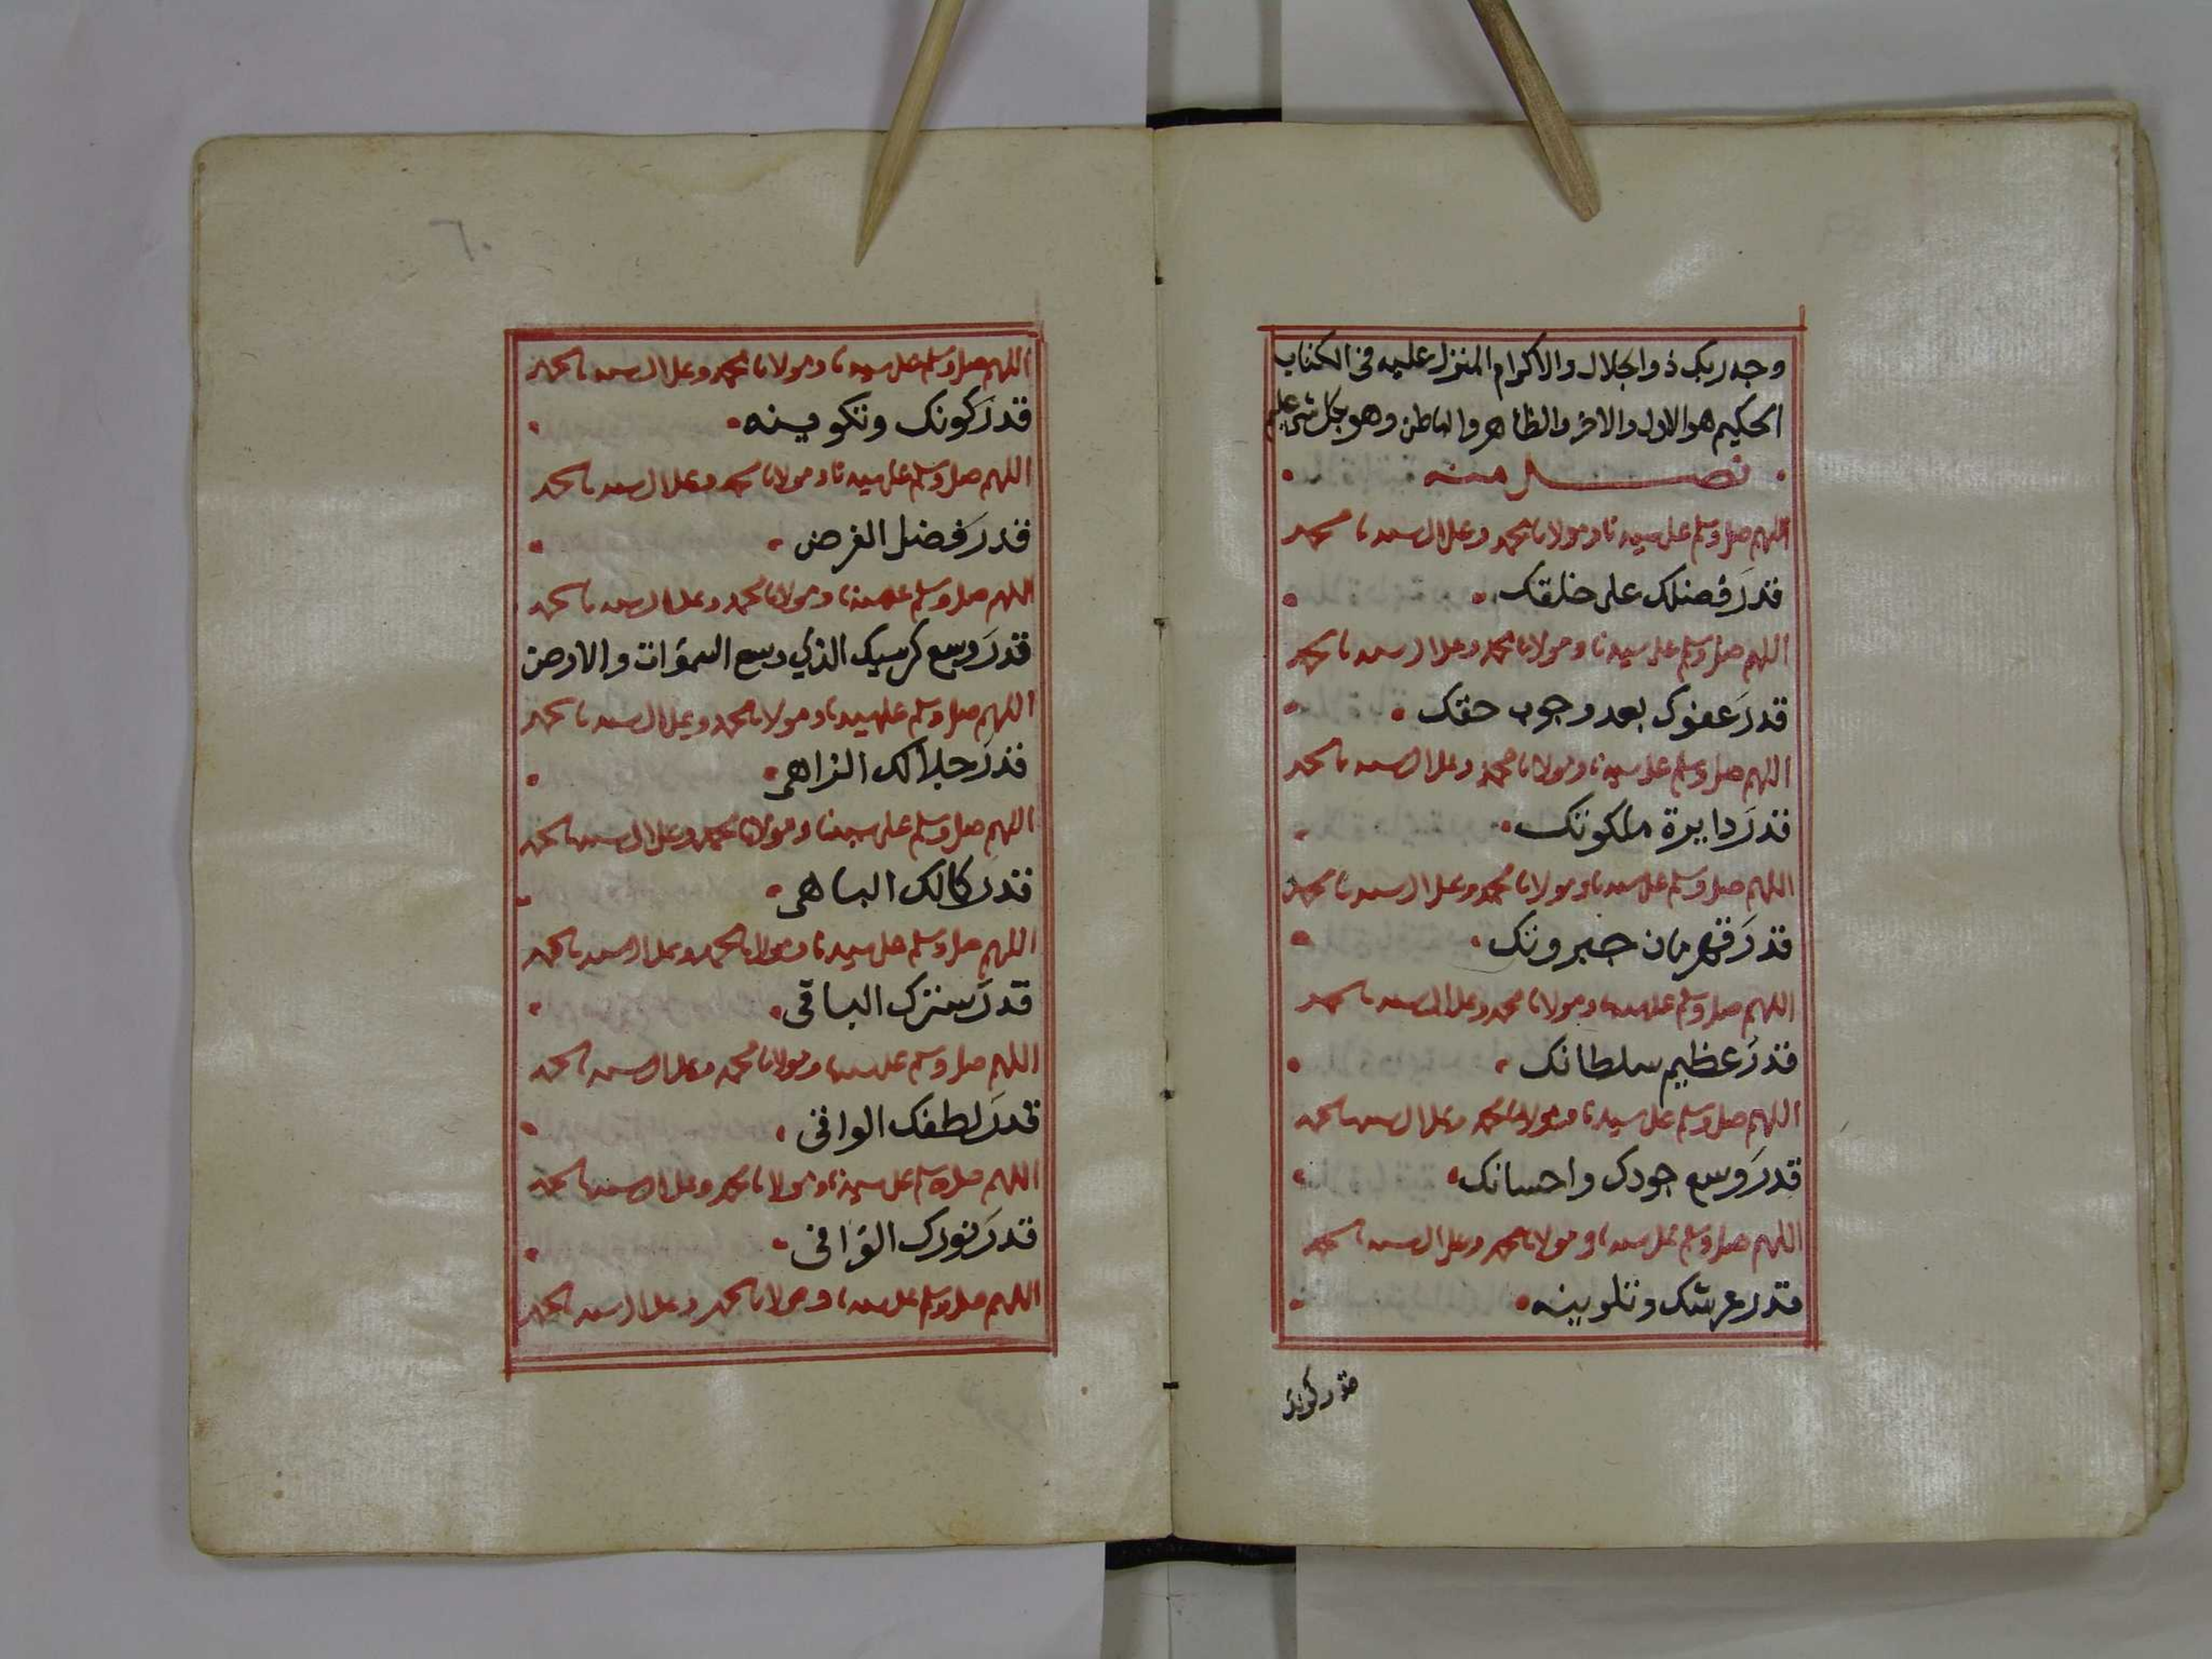 وجه ربك ذو الجلال والاكرام المنزل عليه في الكتاب
الحكيم هو الاول والاخر والظاهر والباطن وهو بكل شئ عليم
فصل منه
اللهم صل وسلم على سيدنا ومولانا محمد وعلى ال سيدنا محمد
قدر فضلك على خلقك
اللهم صل وسلم على سيدنا ومولانا محمد وعلى ال سيدنا محمد
قدر عفوك بعد وجوب حقك
اللهم صل وسلم على سيدنا ومولانا محمد وعلى ال سيدنا محمد
قدر دايرة ملكوتك
اللهم صل وسلم على سيدنا ومولانا محمد وعلى ال سيدنا محمد
قدر قهرمان جبروتك
اللهم صل وسلم على سيدنا ومولانا محمد وعلى ال سيدنا محمد
قدر عظيم سلطانك
اللهم صل وسلم على سيدنا ومولانا محمد وعلى ال سيدنا محمد
قدر وسع جودك واحسانك
اللهم صل وسلم على سيدنا ومولانا محمد وعلى ال سيدنا محمد
قدر عرشك وتلوينه
قدر كونك
٦٠
اللهم صل وسلم على سيدنا ومولانا محمد وعلى ال سيدنا محمد
قدر كونك وتكوينه
اللهم صل وسلم على سيدنا ومولانا محمد وعلى ال سيدنا محمد
قدر فضل الفرض
اللهم صل وسلم على سيدنا ومولانا محمد وعلى ال سيدنا محمد
قدر وسع كرسيك الذي وسع السموات والارض
اللهم صل وسلم على سيدنا ومولانا محمد وعلى ال سيدنا محمد
قدر جلالك الزاهى
اللهم صل وسلم على سيدنا ومولانا محمد وعلى ال سيدنا محمد
قدر كمالك الباهى
اللهم صل وسلم على سيدنا ومولانا محمد وعلى ال سيدنا محمد
قدر سترك الباقى
اللهم صل وسلم على سيدنا ومولانا محمد وعلى ال سيدنا محمد
قدر لطفك الوافى
اللهم صل وسلم على سيدنا ومولانا محمد وعلى ال سيدنا محمد
قدر نورك
اللهم صل وسلم على سيدنا ومولانا محمد وعلى ال سيدنا محمد